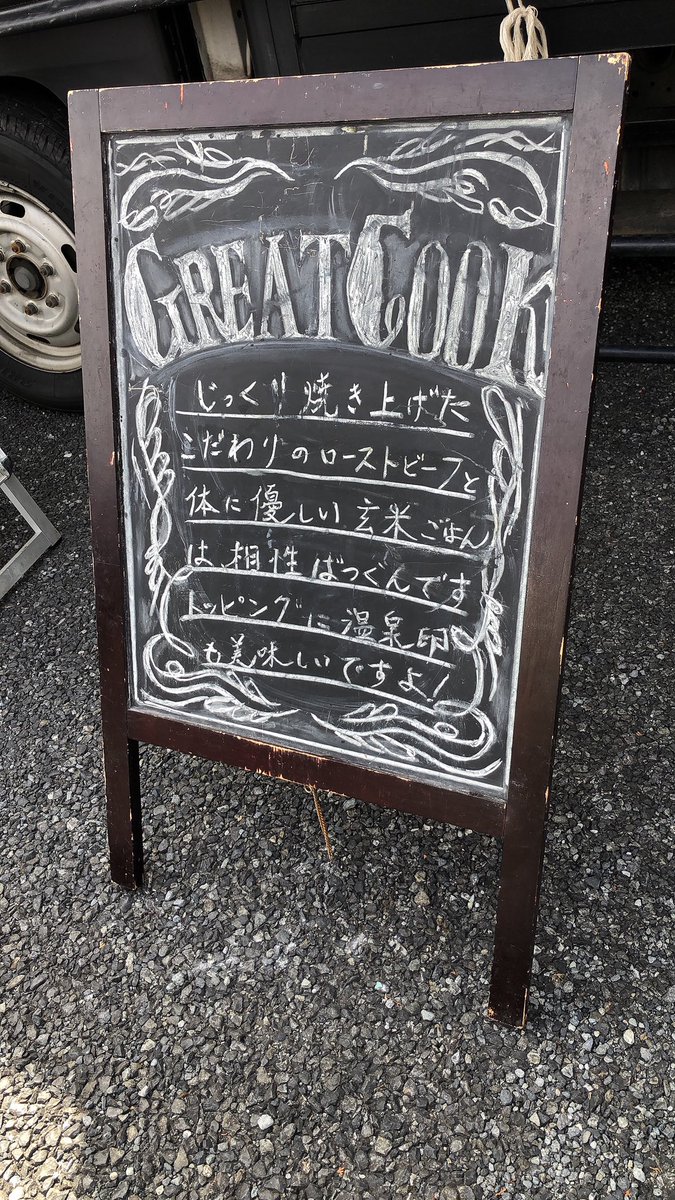 GREAT COOK
じっくり焼き上げた
こだわりのローストビーフと
体に優しい玄米ごはん
は相性ばつぐんです
トッピングに温泉卵
も美味しいですよ!